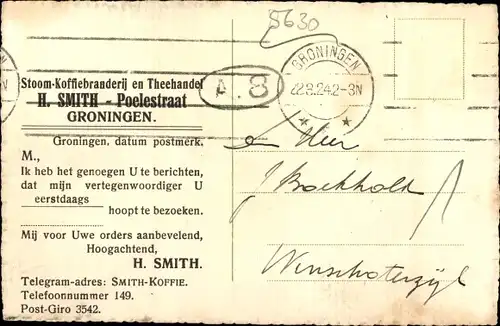 5630
Stoom-Koffiebranderij en Theehandel
H. SMITH - Poelestraat
GRONINGEN.
A.8
GRONINGEN
22.8.24 2-3N
Groningen, datum postmerk.
M.,
Ik heb het genoegen U te berichten,
dat mijn vertegenwoordiger U
eerstdaags
hoopt te bezoeken.
Mij voor Uwe orders aanbevelend,
Hoogachtend,
H. SMITH.
Telegram-adres: SMITH-KOFFIE.
Telefoonnummer 149.
Post-Giro 3542.
den Heer
J Boekholt
Winschoterzijl